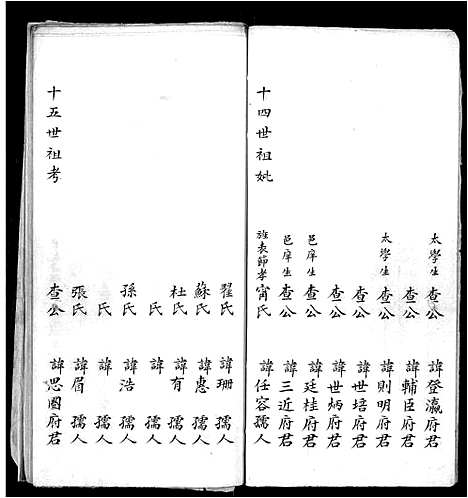 太學生查公 諱登瀛府君
查公 諱輔臣府君
太學生查公 諱則明府君
查公 諱世培府君
查公 諱世炳府君
邑庠生查公 諱廷桂府君
邑庠生查公 諱三近府君
十四世祖妣 旌表節孝甯氏 諱任容孺人
翟氏 諱珊 孺人
蘇氏 諱惠 孺人
杜氏 諱有 孺人
氏 諱 孺人
孫氏 諱浩 孺人
氏 諱 孺人
張氏 諱眉 孺人
十五世祖考 查公 諱思國府君